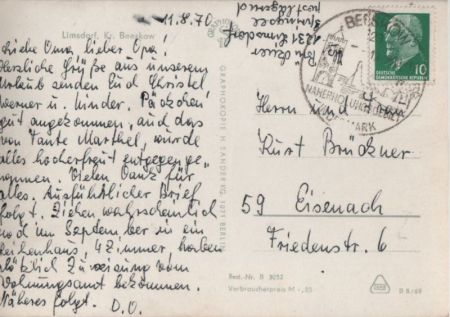 Limsdorf, Kr. Beeskow
11.8.70
Liebe Oma, lieber Opa!
Herzliche Grüße aus unserem
Urlaub senden Euch Christel
Werner u. Kinder. Päckchen
gut angekommen, auch das
von Tante Marthel, wurde
alles hocherfreut entgegenge-
nommen. Vielen Dank für
alles. Ausführlicher Brief
folgt. Ziehen wahrscheinlich
noch im September in ein
Reihenhaus. 4 Zimmer haben
plötzlich Zuweisung vom
Wohnungsamt bekommen.
Näheres folgt. D.O.
GRAPHOKOPIE H. SANDER KG 1071 BERLIN
Best.-Nr. B 3052
Verbraucherpreis M -,25
1231 Limsdorf
postlagernd
BEESKOW
DEUTSCHE
DEMOKRATISCHE REPUBLIK
10
Herrn und Frau
Kurt Brückner
59 Eisenach
Friedenstr. 6